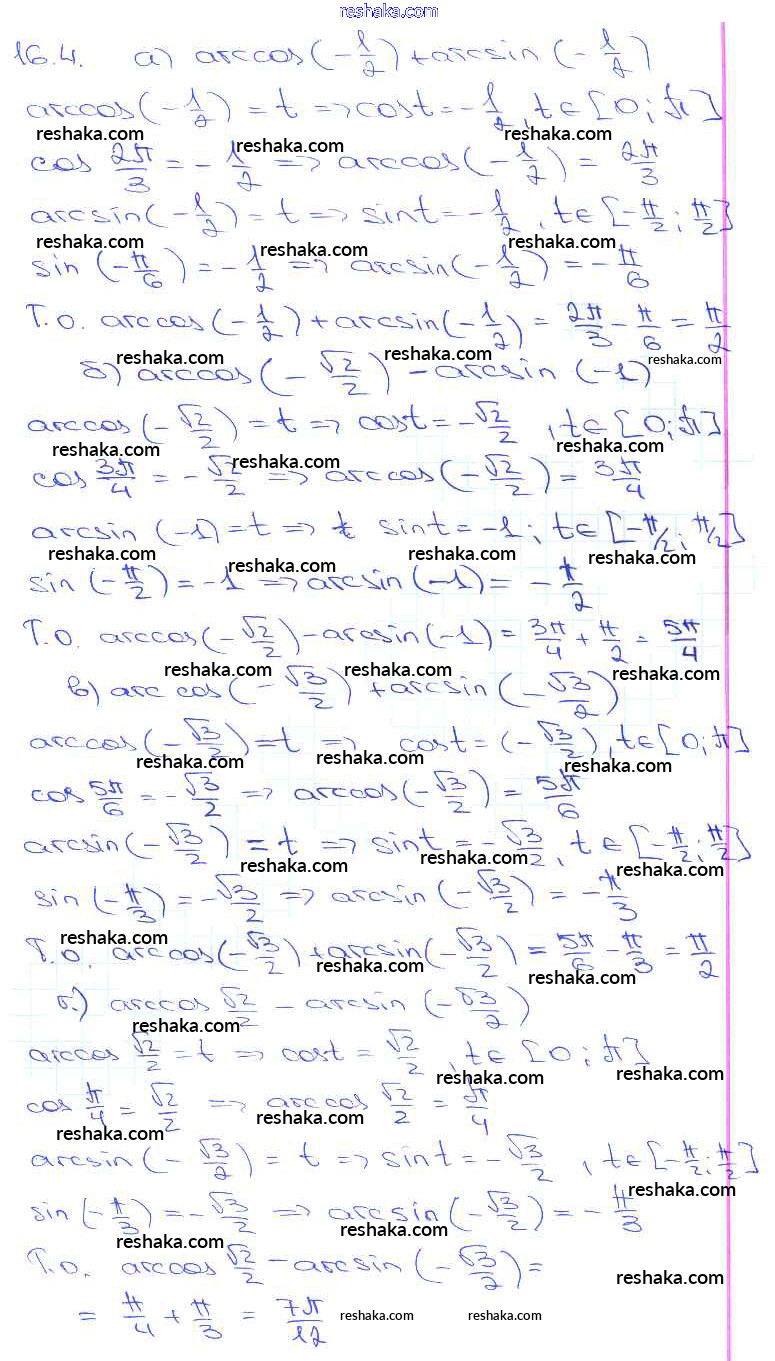 reshaka.com
16.4. а) arccos(-1/2) + arcsin(-1/2)
arccos(-1/2) = t => cost = -1/2, t∈[0; π]
reshaka.com reshaka.com reshaka.com
cos 2π/3 = -1/2 => arccos(-1/2) = 2π/3
arcsin(-1/2) = t => sint = -1/2, t∈[-π/2; π/2]
reshaka.com reshaka.com reshaka.com
sin(-π/6) = -1/2 => arcsin(-1/2) = -π/6
Т.о. arccos(-1/2) + arcsin(-1/2) = 2π/3 - π/6 = π/2
reshaka.com reshaka.com reshaka.com
б) arccos(-√2/2) - arcsin(-1)
arccos(-√2/2) = t => cost = -√2/2, t∈[0; π]
reshaka.com reshaka.com reshaka.com
cos 3π/4 = -√2/2 => arccos(-√2/2) = 3π/4
arcsin(-1) = t => t sint = -1; t∈[-π/2; π/2]
reshaka.com reshaka.com reshaka.com
sin(-π/2) = -1 => arcsin(-1) = -π/2
Т.о. arccos(-√2/2) - arcsin(-1) = 3π/4 + π/2 = 5π/4
reshaka.com reshaka.com reshaka.com
в) arccos(-√3/2) + arcsin(-√3/2)
arccos(-√3/2) = t => cost = (-√3/2), t∈[0; π]
reshaka.com reshaka.com reshaka.com
cos 5π/6 = -√3/2 => arccos(-√3/2) = 5π/6
arcsin(-√3/2) = t => sint = -√3/2, t∈[-π/2; π/2]
reshaka.com reshaka.com reshaka.com
sin(-π/3) = -√3/2 => arcsin(-√3/2) = -π/3
reshaka.com
Т.о. arccos(-√3/2) + arcsin(-√3/2) = 5π/6 - π/3 = π/2
reshaka.com reshaka.com
г) arccos √2/2 - arcsin(-√3/2)
reshaka.com
arccos √2/2 = t => cost = √2/2, t∈[0; π]
reshaka.com reshaka.com
cos π/4 = √2/2 => arccos √2/2 = π/4
reshaka.com reshaka.com
arcsin(-√3/2) = t => sint = -√3/2, t∈[-π/2; π/2]
reshaka.com
sin(-π/3) = -√3/2 => arcsin(-√3/2) = -π/3
reshaka.com reshaka.com
Т.о. arccos √2/2 - arcsin(-√3/2) =
reshaka.com
= π/4 + π/3 = 7π/12
reshaka.com reshaka.com